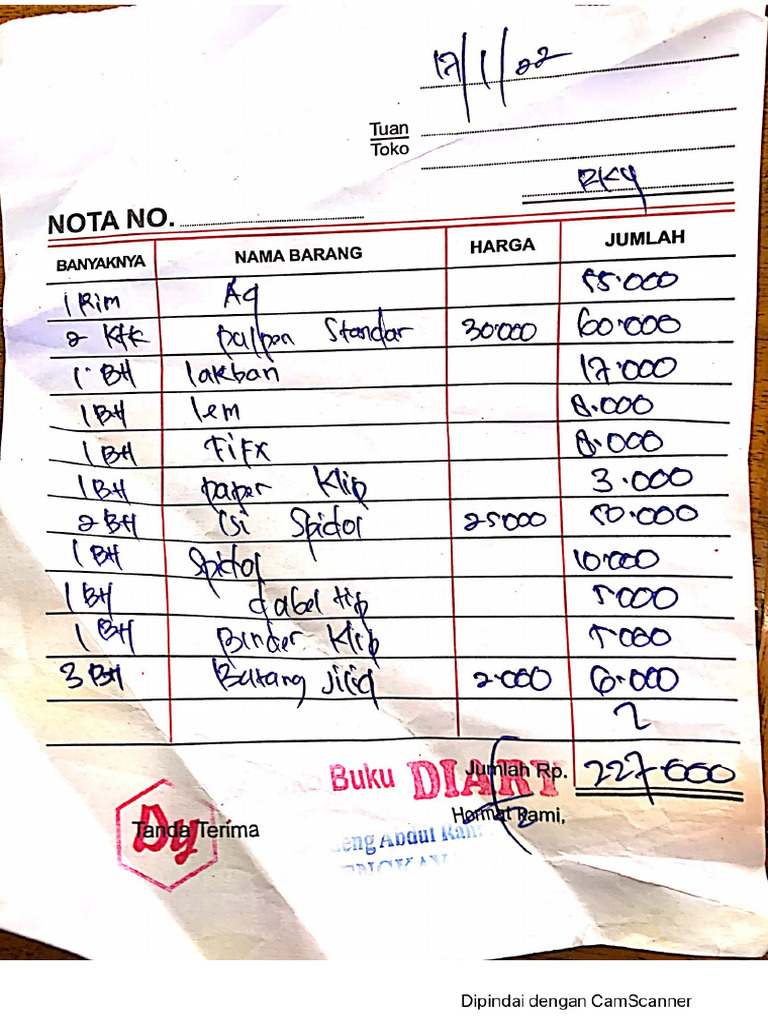 17/1/22
Tuan
Toko
RKY
NOTA NO.
BANYAKNYA NAMA BARANG HARGA JUMLAH
1 Rim A4 55.000
2 Ktk palpen Standar 30.000 60.000
1 BH lakban 17.000
1 BH lem 8.000
1 BH FiFX 8.000
1 BH paper Klip 3.000
2 BH Isi Spidol 25.000 50.000
1 BH Spidol 10.000
1 BH dabel tip 5000
1 BH Binder Klip 5.000
3 BH Batang Jilid 2.000 6.000
Buku DIARY
Jumlah Rp. 227.000
Dy
Tanda Terima Hormat Kami,
eng Abdul Rah
Dipindai dengan CamScanner